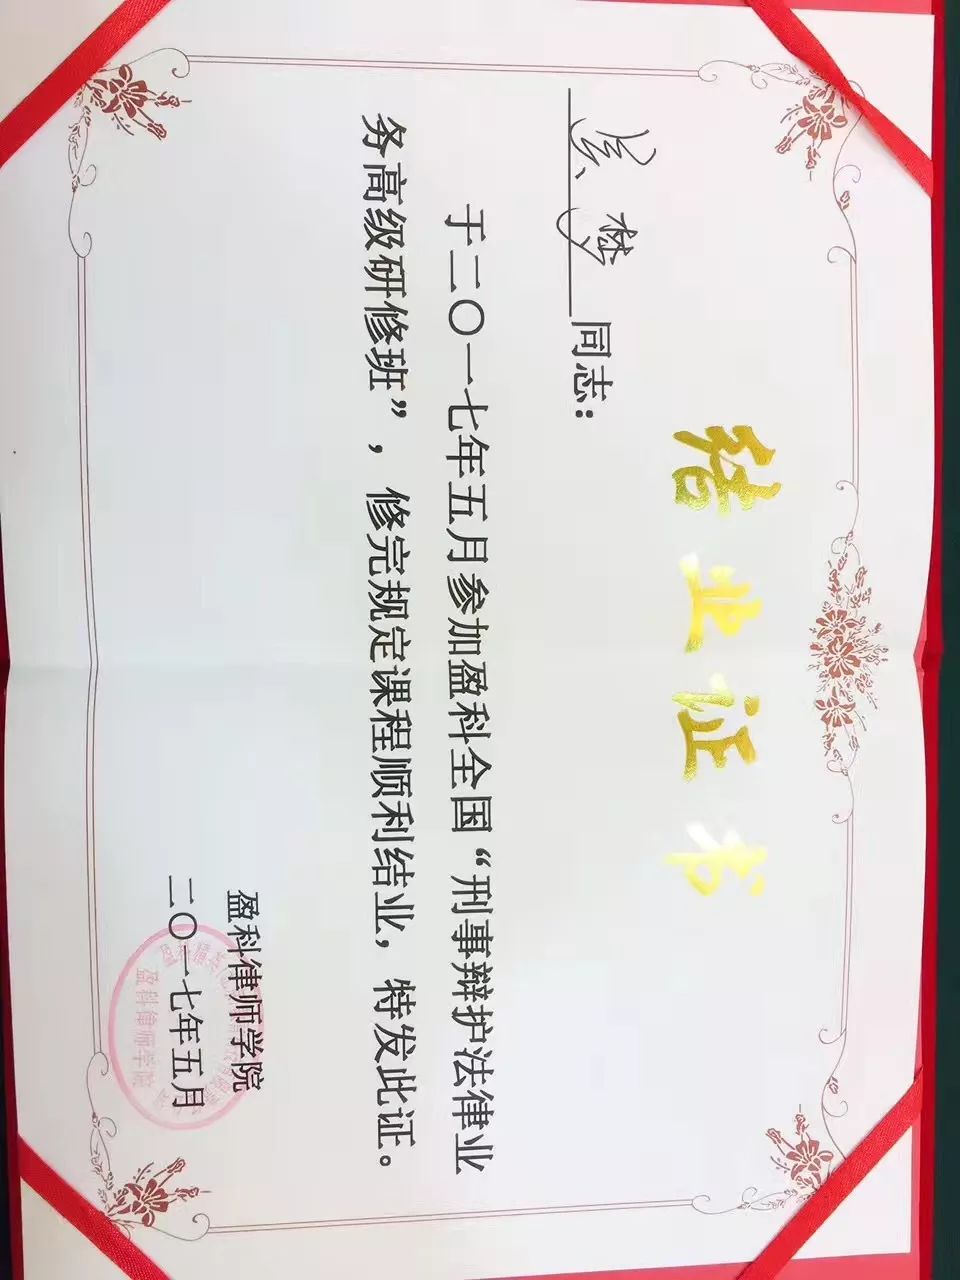 结业证书
同志：
于二〇一七年五月参加盈科全国“刑事辩护法律业
务高级研修班”，修完规定课程顺利结业，特发此证。
盈科律师学院
二〇一七年五月
盈科律师学院